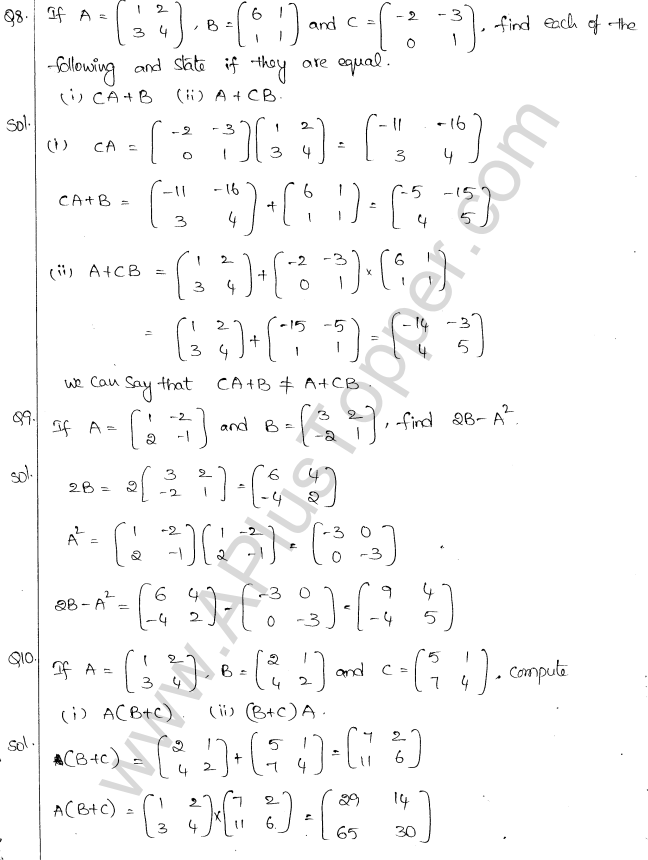 Q8. If A = (1 2 / 3 4), B = (6 1 / 1 1) and C = (-2 -3 / 0 1), find each of the
following and state if they are equal.
(i) CA+B (ii) A+CB.
Sol.
(i) CA = (-2 -3 / 0 1)(1 2 / 3 4) = (-11 -16 / 3 4)
CA+B = (-11 -16 / 3 4) + (6 1 / 1 1) = (-5 -15 / 4 5)
(ii) A+CB = (1 2 / 3 4) + (-2 -3 / 0 1) × (6 1 / 1 1)
= (1 2 / 3 4) + (-15 -5 / 1 1) = (-14 -3 / 4 5)
we can say that CA+B ≠ A+CB.
Q9. If A = (1 -2 / 2 -1) and B = (3 2 / -2 1), find 2B-A².
Sol.
2B = 2(3 2 / -2 1) = (6 4 / -4 2)
A² = (1 -2 / 2 -1)(1 -2 / 2 -1) = (-3 0 / 0 -3)
2B-A² = (6 4 / -4 2) - (-3 0 / 0 -3) = (9 4 / -4 5)
Q10. If A = (1 2 / 3 4), B = (2 1 / 4 2) and C = (5 1 / 7 4), compute
(i) A(B+C). (ii) (B+C)A.
Sol.
A(B+C) = (2 1 / 4 2) + (5 1 / 7 4) = (7 2 / 11 6)
A(B+C) = (1 2 / 3 4) × (7 2 / 11 6) = (29 14 / 65 30)
www.APlusTopper.com